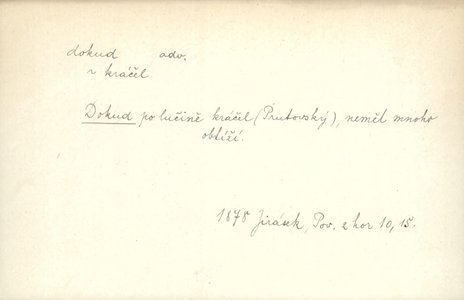 dokud adv.
r kráčel
Dokud po lučině kráčel (Prutovský), neměl mnoho
obtíží.
1878 Jirásek, Pov. z hor 10, 15.